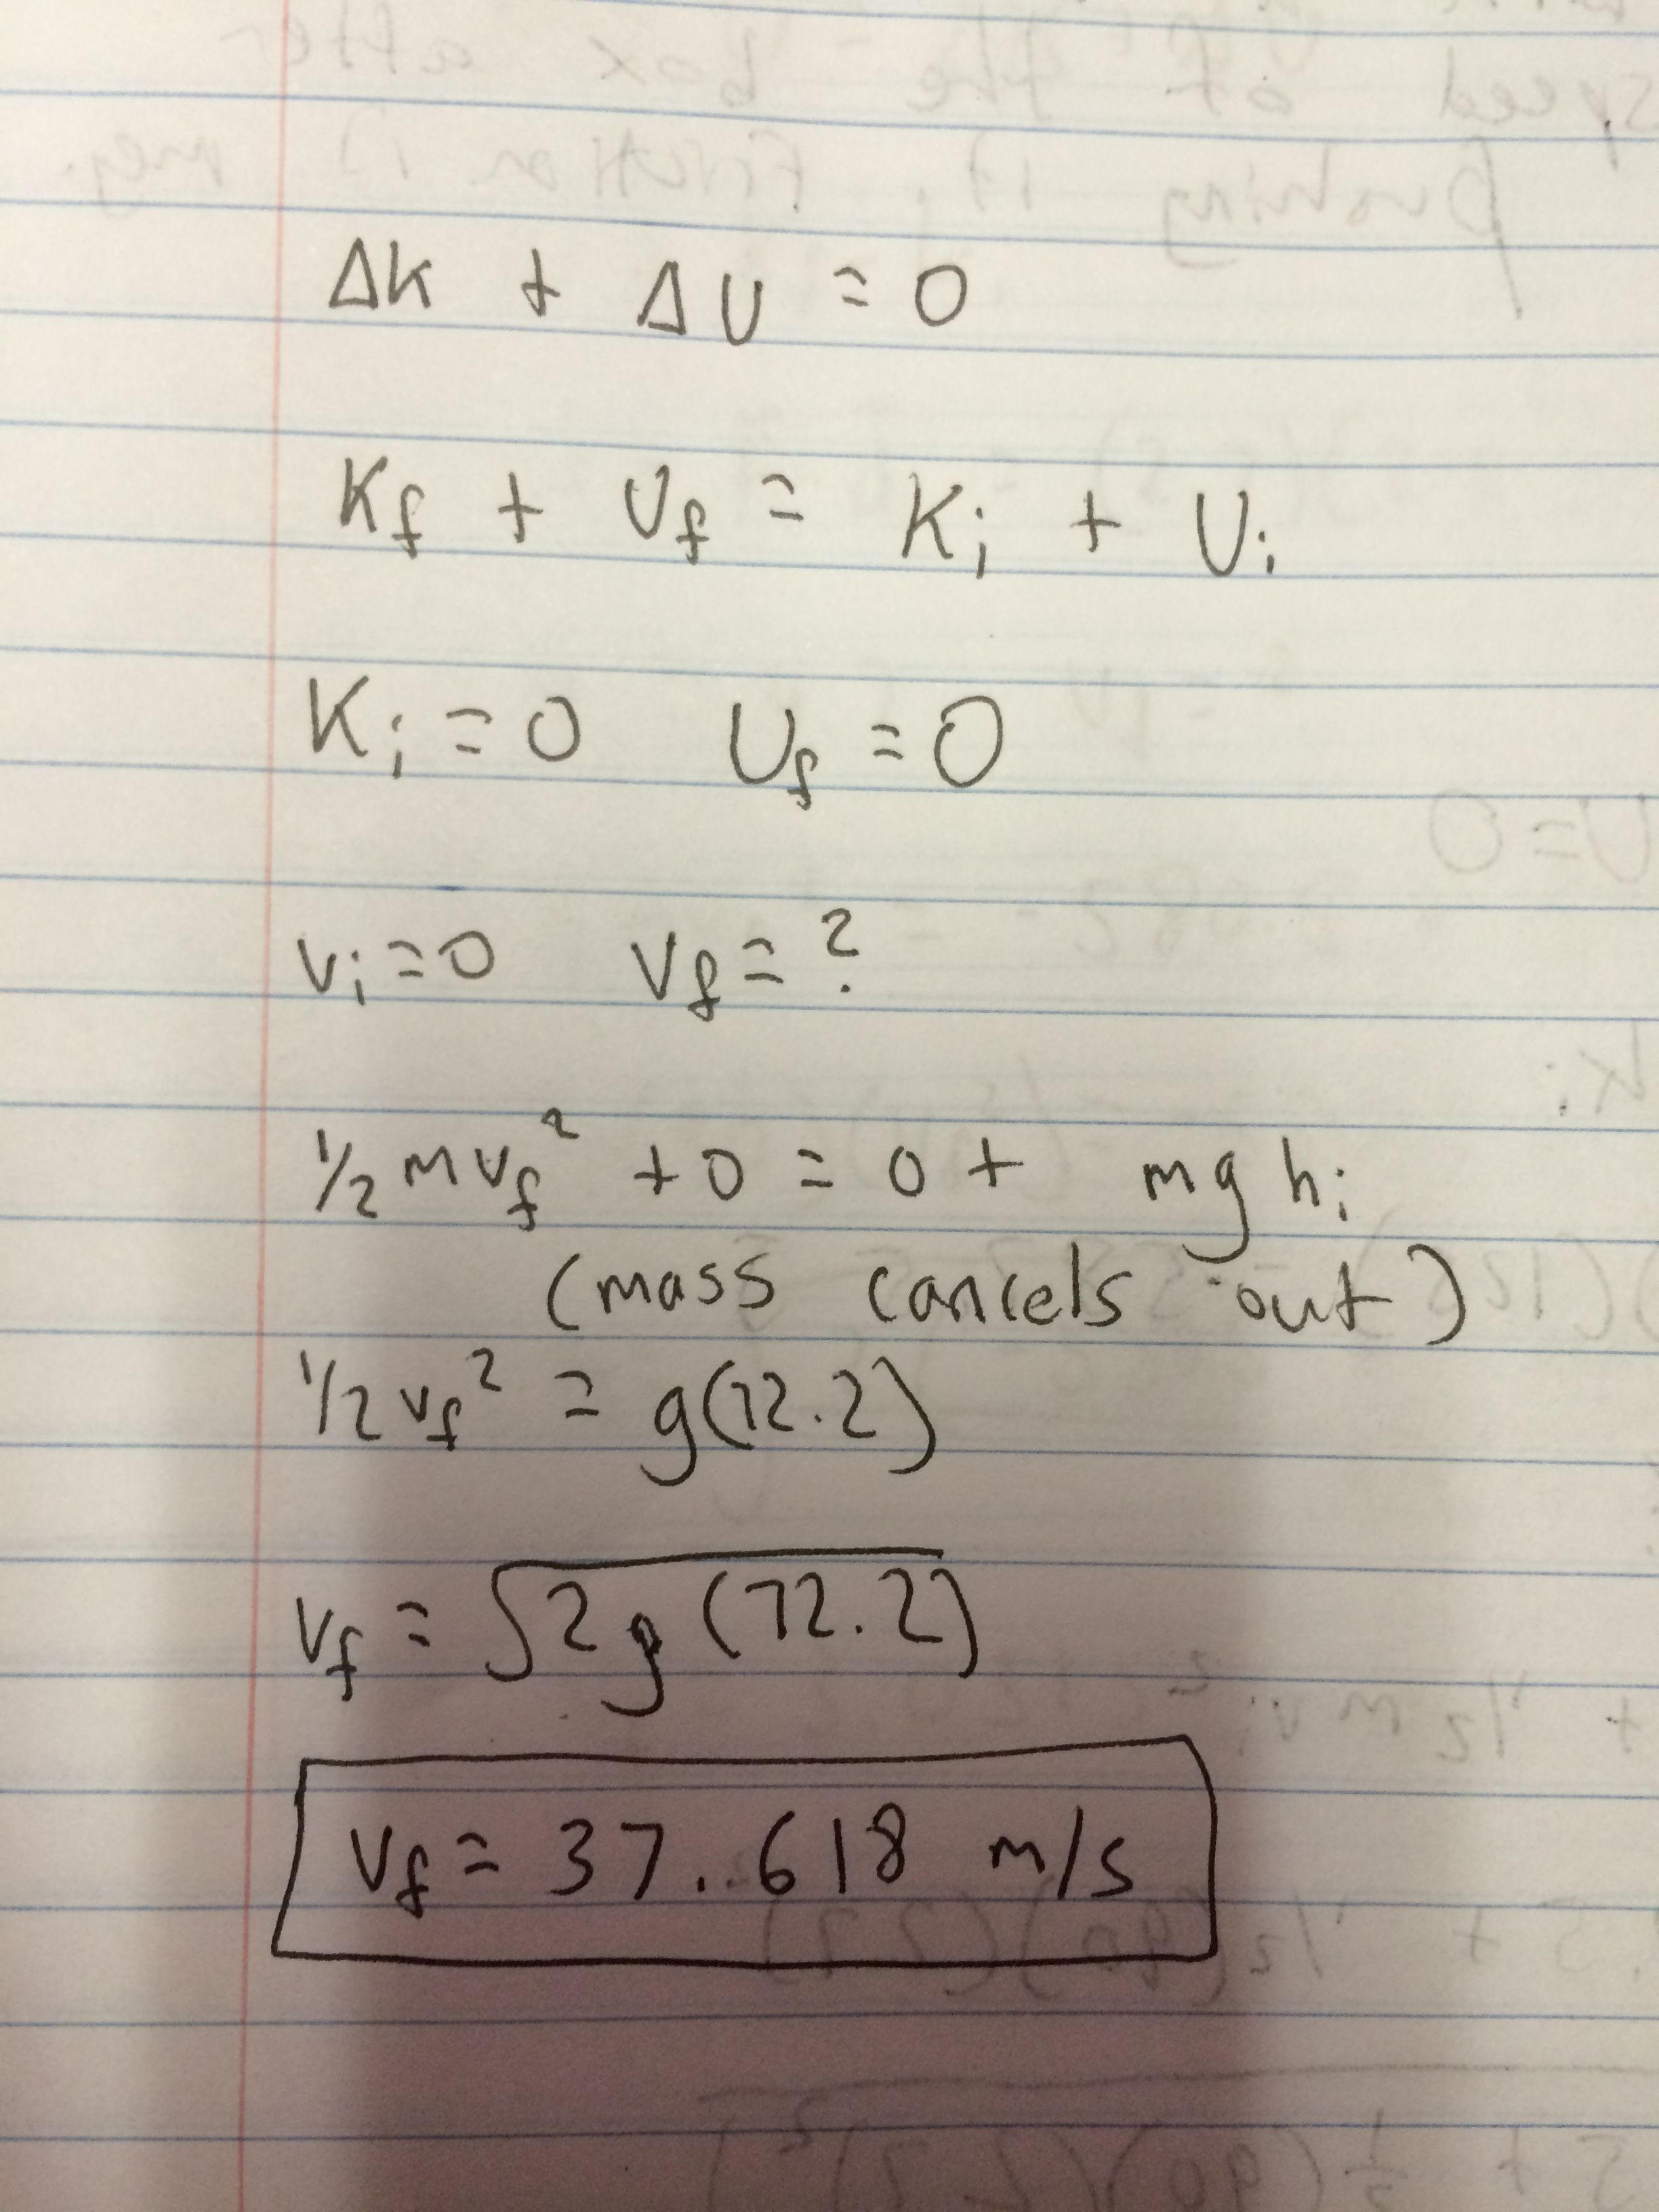 Δk + ΔU = 0
Kf + Uf = Ki + Ui
Ki = 0 Uf = 0
vi = 0 vf = ?
1/2 mvf² + 0 = 0 + mghi
(mass cancels out)
1/2 vf² = g(72.2)
vf = √2g(72.2)
vf = 37.618 m/s